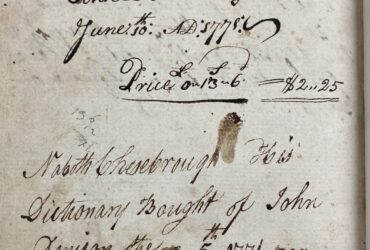 June 10th. AD. 1771.
Price 0"13"6 = $2..25
Naboth Chesebrough His
Dictionary Bought of John
5th 1771